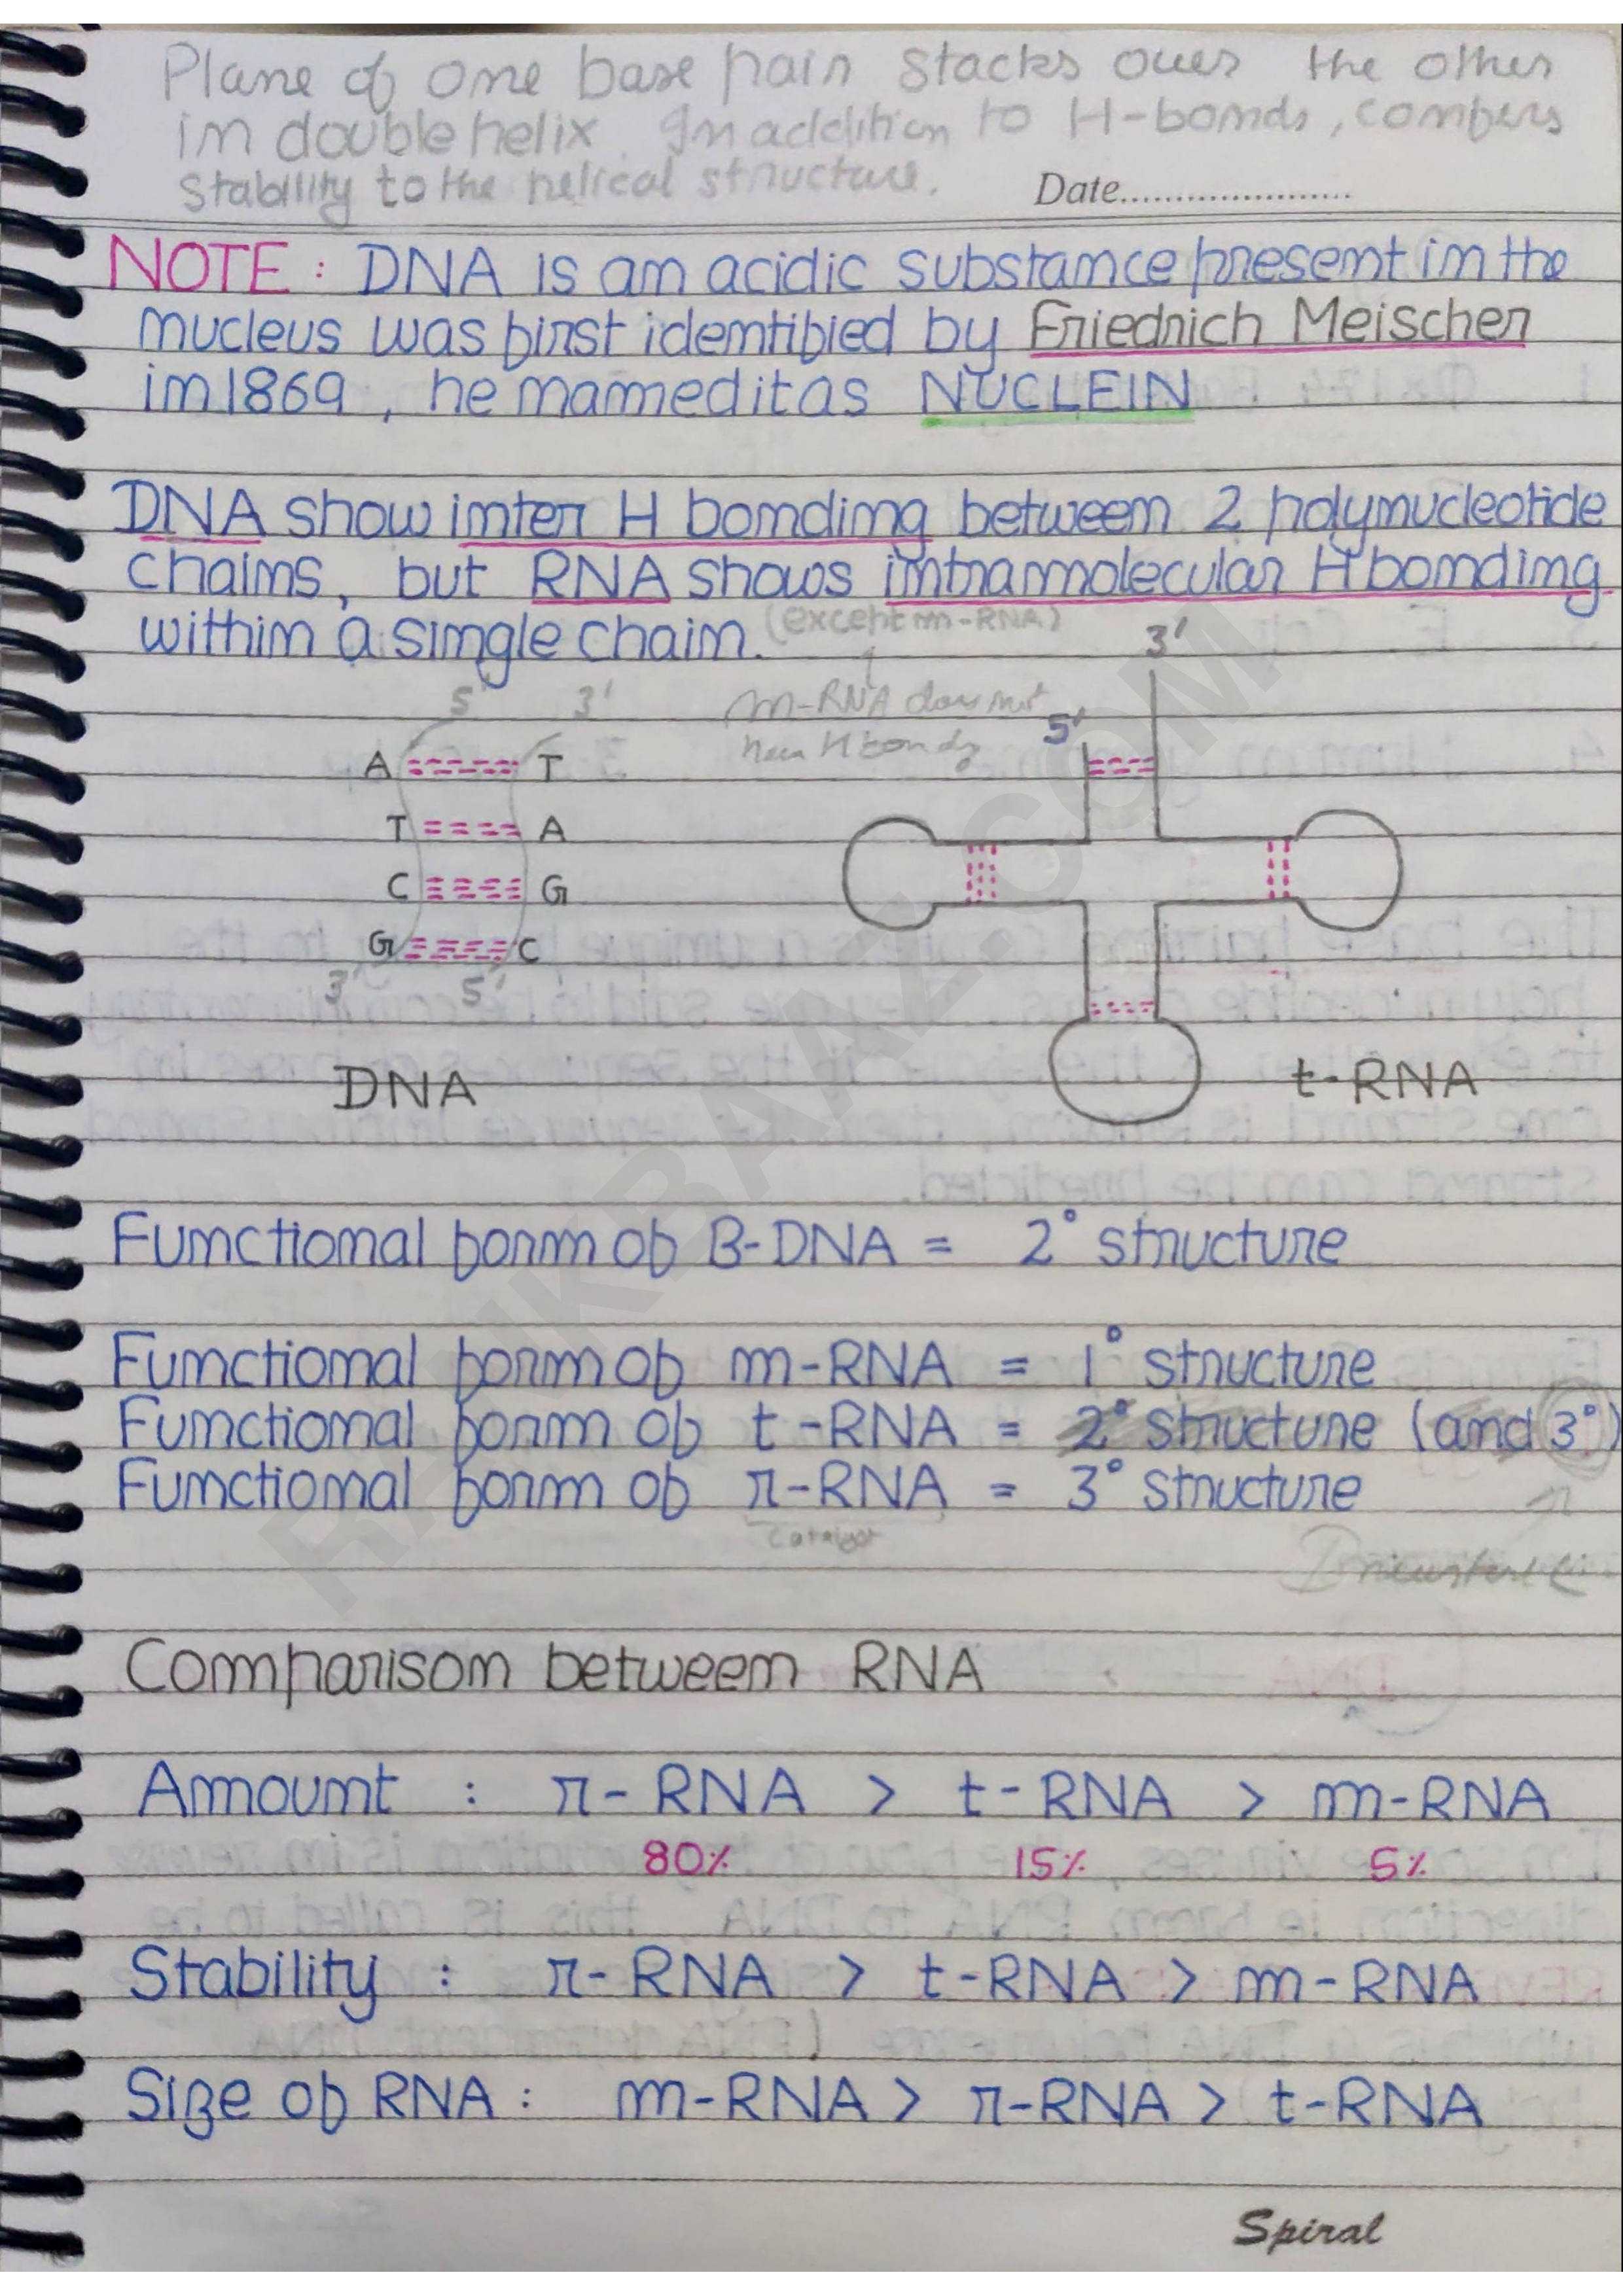 Plane of one base pair stacks over the other
in double helix. In addition to H-bonds, confers
stability to the helical structure.
Date......................
NOTE : DNA is an acidic substance present in the
nucleus was first identified by Friedrich Meischer
in 1869 , he named it as NUCLEIN
DNA show inter H bonding between 2 polynucleotide
chains, but RNA shows intramolecular H bonding
within a single chain. (except m-RNA)
3'
5' 3' m-RNA does not
5'
have H bonds
A T
T A
C G
G C
3' 5'
DNA t-RNA
Functional form of B-DNA = 2° structure
Functional form of m-RNA = 1° structure
Functional form of t-RNA = 2° structure (and 3°)
Functional form of r-RNA = 3° structure
Catalyst
Comparison between RNA
Amount : r-RNA > t-RNA > m-RNA
80% 15% 5%
Stability : r-RNA > t-RNA > m-RNA
Size of RNA : m-RNA > r-RNA > t-RNA
Spiral
RANKBAAZ.COM